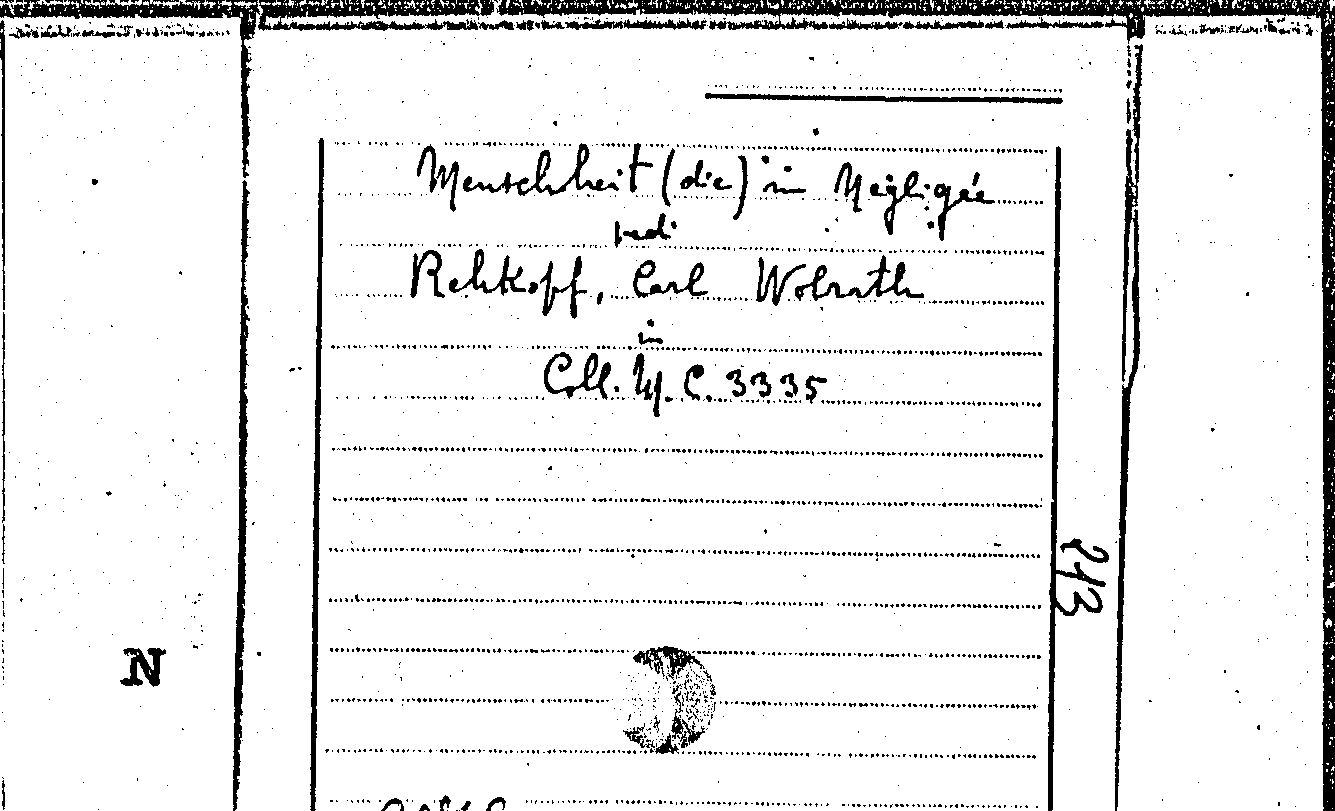 Menschheit (die) in Négligée
vedi
Rehkopf, Carl Wolrath
in
Coll. M. C. 3335
213
N